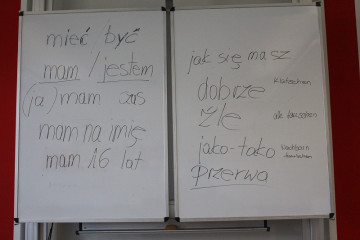 mieć być
mam / jestem
(ja) mam czas
mam na imię
mam 16 lat
jak się masz
dobrze
źle
jako-tako
przerwa